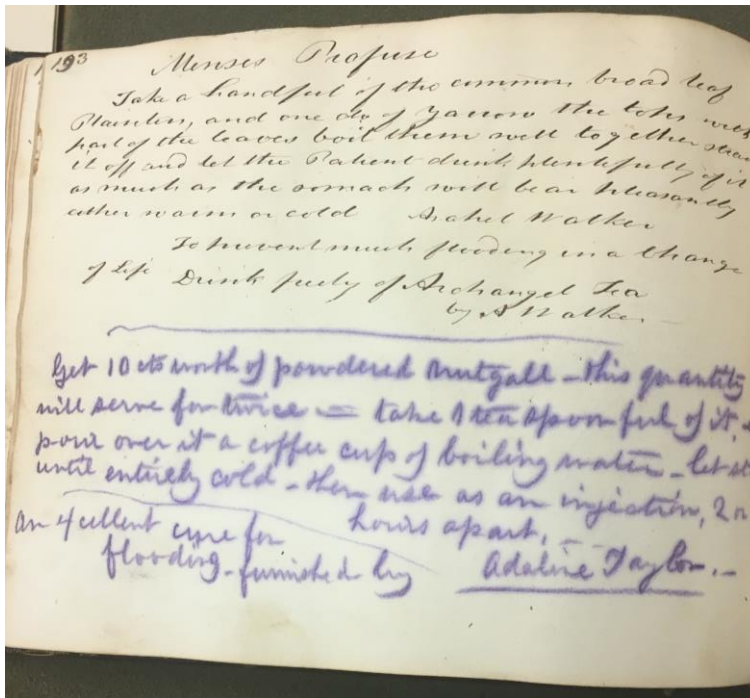 193
Menses Profuse
Take a handful of the common broad leaf
Plantin, and one do of yarrow the tops with
part of the leaves boil them well together
it off and let the Patient drink plentifully of it
as much as the somach will bear pleasantly
either warm or cold Asahel Walker
To prevent much flooding in a Change
of Life Drink freely of Archangel Tea
by A Walker
Get 10 cts worth of powdered Nutgall - this quantity
will serve for twice = take 1 tea spoon ful of it,
pour over it a coffee cup of boiling water - let
until entirely cold - then use as an injection, 2
hours apart, -
An excellent cure for
flooding - furnished by Adaline Taylor. -